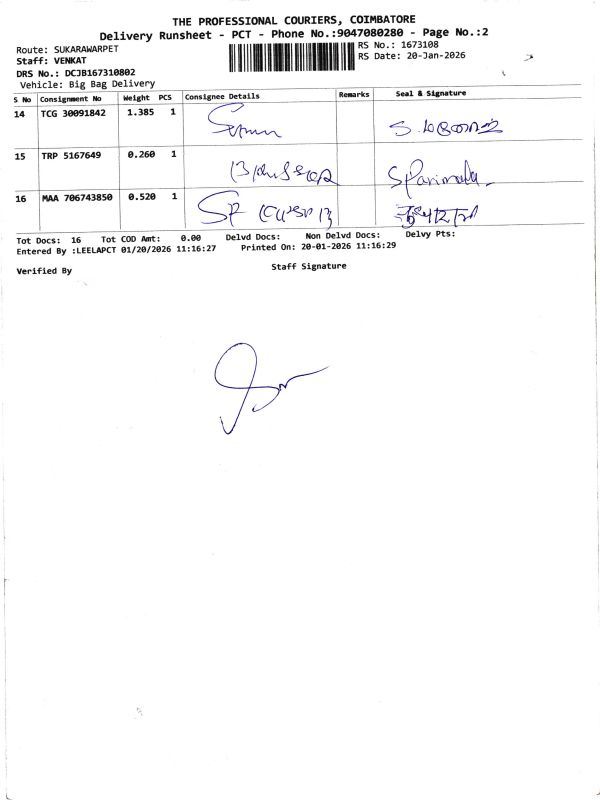 THE PROFESSIONAL COURIERS, COIMBATORE
Delivery Runsheet - PCT - Phone No.:9047080280 - Page No.:2
Route: SUKARAWARPET
RS No.: 1673108
Staff: VENKAT
RS Date: 20-Jan-2026
DRS No.: DCJB167310802
Vehicle: Big Bag Delivery
S No Consignment No Weight PCS Consignee Details Remarks Seal & Signature
14 TCG 30091842 1.385 1
15 TRP 5167649 0.260 1 S Parimala
16 MAA 706743850 0.520 1
Tot Docs: 16 Tot COD Amt: 0.00 Delvd Docs: Non Delvd Docs: Delvy Pts:
Entered By :LEELAPCT 01/20/2026 11:16:27 Printed On: 20-01-2026 11:16:29
Verified By Staff Signature